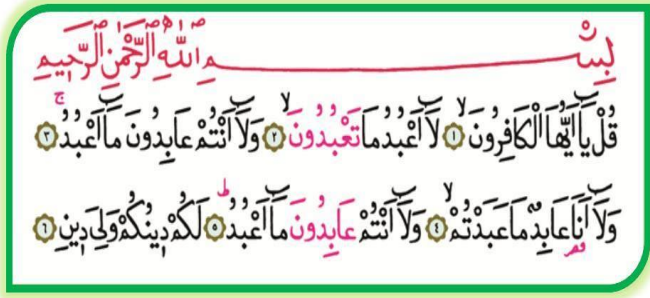 بِسْمِ اللّٰهِ الرَّحْمٰنِ الرَّحِيمِ
قُلْ يَٓا اَيُّهَا الْكَافِرُونَۙ ﴿١﴾ لَٓا اَعْبُدُ مَا تَعْبُدُونَۙ ﴿٢﴾ وَلَٓا اَنْتُمْ عَابِدُونَ مَٓا اَعْبُدُۚ ﴿٣﴾
وَلَٓا اَنَا۬ عَابِدٌ مَا عَبَدْتُمْۙ ﴿٤﴾ وَلَٓا اَنْتُمْ عَابِدُونَ مَٓا اَعْبُدُۜ ﴿٥﴾ لَكُمْ دِينُكُمْ وَلِيَ دِينِ ﴿٦﴾